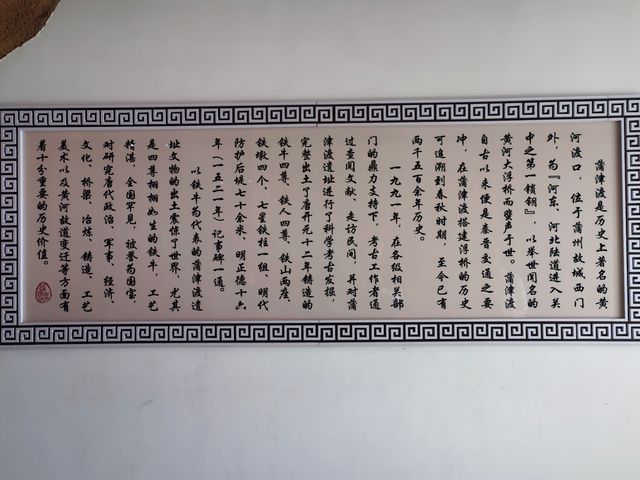 蒲津渡是历史上著名的黄
河渡口，位于蒲州故城西门
外，为『河东、河北陆道进入关
中之第一锁钥』，以举世闻名的
黄河大浮桥而蜚声于世。蒲津渡
自古以来便是秦晋交通之要
冲，在蒲津渡搭建浮桥的历史
可追溯到春秋时期，至今已有
两千五百余年历史。
一九九一年，在各级相关部
门的鼎力支持下，考古工作者通
过查阅文献、走访民间，并对蒲
津渡遗址进行了科学考古发掘，
完整出土了唐开元十二年铸造的
铁牛四尊、铁人四尊、铁山两座、
铁墩四个、七星铁柱一组、明代
防护石堤七十余米、明正德十六
年（一五二一年）记事碑一通。
以铁牛为代表的蒲津渡遗
址文物的出土震惊了世界，尤其
是四尊栩栩如生的铁牛，工艺
精湛，全国罕见，被誉为国宝，
对研究唐代政治、军事、经济、
文化、桥梁、冶炼、铸造、工艺
美术以及黄河故道变迁等方面有
着十分重要的历史价值。